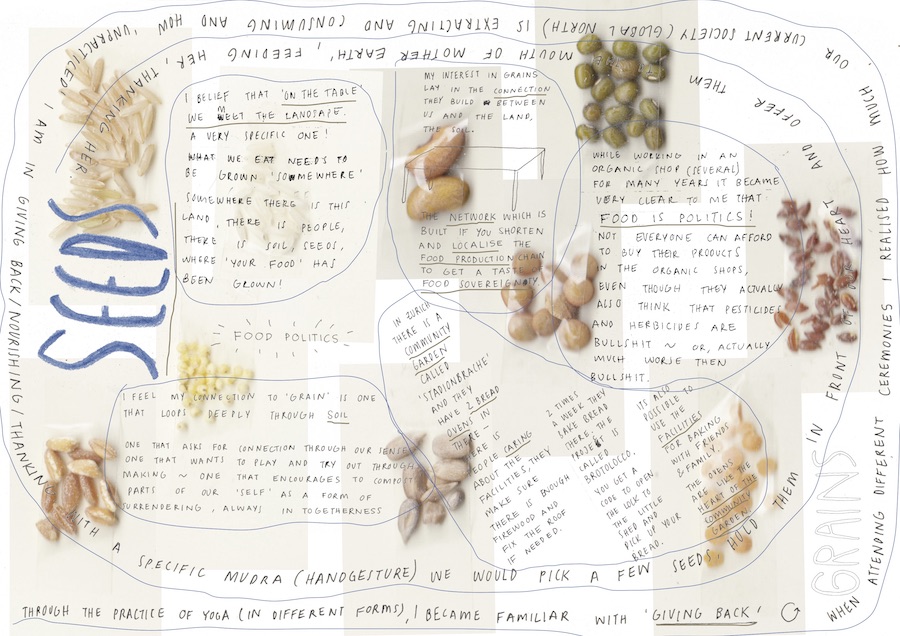 SEEDS
GRAINS
THROUGH THE PRACTICE OF YOGA (IN DIFFERENT FORMS), I BECAME FAMILIAR WITH 'GIVING BACK'
WHEN ATTENDING DIFFERENT CEREMONIES I REALISED HOW MUCH OUR CURRENT SOCIETY (GLOBAL NORTH) IS EXTRACTING AND CONSUMING AND HOW 'UNPRACTICED' I AM IN GIVING BACK / NOURISHING / THANKING
WITH A SPECIFIC MUDRA (HANDGESTURE) WE WOULD PICK A FEW SEEDS, HOLD THEM IN FRONT OF HEART AND OFFER THEM TO THE MOUTH OF MOTHER EARTH', FEEDING HER, THANKING HER.
I BELIEF THAT 'ON THE TABLE
WE MEET THE LANDSTAPE.
A VERY SPECIFIC ONE!
WHAT WE EAT NEEDS TO
BE GROWN 'SOMEWHERE'
SOMEWHERE THERE IS THIS
LAND, THERE IS PEOPLE,
THERE IS SOIL, SEEDS,
WHERE 'YOUR FOOD' HAS
BEEN GROWN!
MY INTEREST IN GRAINS
LAY IN THE CONNECTION
THEY BUILD BETWEEN
US AND THE LAND,
THE SOIL.
THE NETWORK WHICH IS
BUILT IF YOU SHORTEN
AND LOCALISE THE
FOOD PRODUCTION CHAIN
TO GET A TASTE OF
FOOD SOVEREIGNITY.
WHILE WORKING IN AN
ORGANIC SHOP (SEVERAL)
FOR MANY YEARS IT BECAME
VERY CLEAR TO ME THAT
FOOD IS POLITICS!
NOT EVERYONE CAN AFFORD
TO BUY THEIR PRODUCTS
IN THE ORGANIC SHOPS,
EVEN THOUGH THEY ACTUALLY
ALSO THINK THAT PESTICIDES
AND HERBICIDES ARE
BULLSHIT ~ OR, ACTUALLY
MUCH WORSE THEN
BULLSHIT.
FOOD POLITICS
I FEEL MY CONNECTION TO 'GRAIN' IS ONE
THAT LOOPS DEEPLY THROUGH SOIL
ONE THAT ASKS FOR CONNECTION THROUGH OUR SENSES
ONE THAT WANTS TO PLAY AND TRY OUT THROUGH
MAKING ~ ONE THAT ENCOURAGES TO COMPOST
PARTS OF OUR 'SELF' AS A FORM OF
SURRENDERING, ALWAYS IN TOGETHERNESS
IN ZURICH
THERE IS A
COMMUNITY
GARDEN
CALLED
'STADIONBRACHE'
AND THEY
HAVE 2 BREAD
OVENS IN
THERE ~
PEOPLE CARING
ABOUT THE
FACILITIES, THEY
MAKE SURE
THERE IS ENOUGH
FIREWOOD AND
FIX THE ROOF
IF NEEDED.
2 TIMES
A WEEK THEY
BAKE BREAD
THERE. THE
PROJECT IS
CALLED
BROTOLOCCO.
YOU GET A
CODE TO OPEN
THE LOCK TO
THE LITTLE
SHED AND
PICK UP YOUR
BREAD.
ITS ALSO
POSSIBLE TO
USE THE
FACILITIES
FOR BAKING
WITH FRIENDS
& FAMILY.
THE OPENS
ARE LIKE THE
HEART OF THE
COMMUNITY
GARDEN.